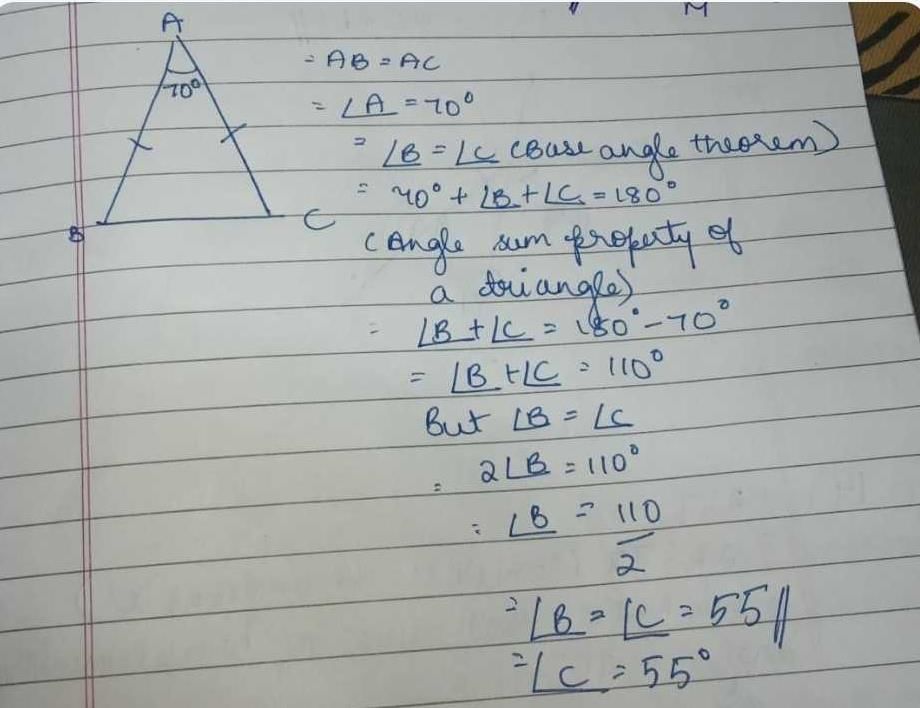 " M
A
70°
B
C
= AB = AC
= ∠A = 70°
= ∠B = ∠C (Base angle theorem)
= 70° + ∠B + ∠C = 180°
(Angle sum property of
a triangle)
= ∠B + ∠C = 180° - 70°
= ∠B + ∠C = 110°
But ∠B = ∠C
= 2∠B = 110°
= ∠B = 110
2
= ∠B = ∠C = 55 //
= ∠C = 55°